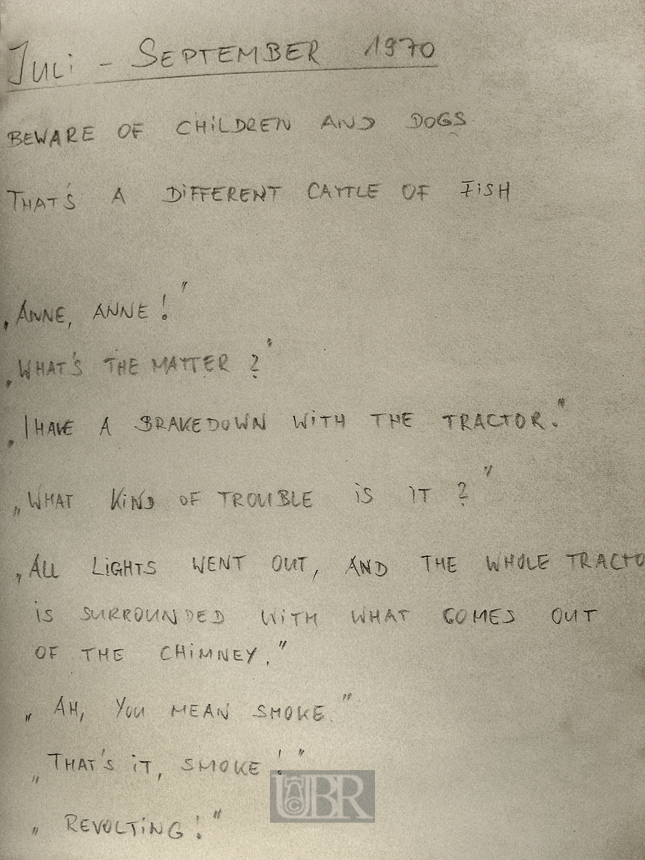 JULI - SEPTEMBER 1970
BEWARE OF CHILDREN AND DOGS
THAT'S A DIFFERENT CATTLE OF FISH
„ANNE, ANNE!"
„WHAT'S THE MATTER?"
„I HAVE A BRAKEDOWN WITH THE TRACTOR."
„WHAT KIND OF TROUBLE IS IT?"
„ALL LIGHTS WENT OUT, AND THE WHOLE TRACTO
IS SURROUNDED WITH WHAT COMES OUT
OF THE CHIMNEY."
„AH, YOU MEAN SMOKE."
„THAT'S IT, SMOKE!"
UBR
„REVOLTING!"